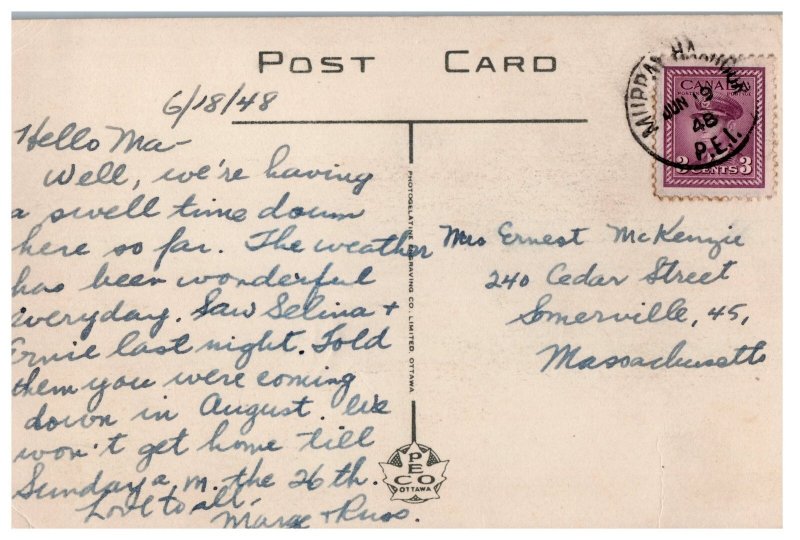 POST CARD
6/18/48
Hello Ma-
Well, we're having
a swell time down
here so far. The weather
has been wonderful
everyday. Saw Selina +
Ernie last night. Told
them you were coming
down in August. We
won't get home till
Sunday a.m. the 26th.
Love to all,
Marge + Russ.
PHOTOGELATINE ENGRAVING CO. LIMITED, OTTAWA
PECO
OTTAWA
MURRAY HARBOUR
JUN 19
48
P.E.I.
CANADA
3 CENTS 3
Mrs Ernest McKenzie
240 Cedar Street
Somerville, 45,
Massachusetts